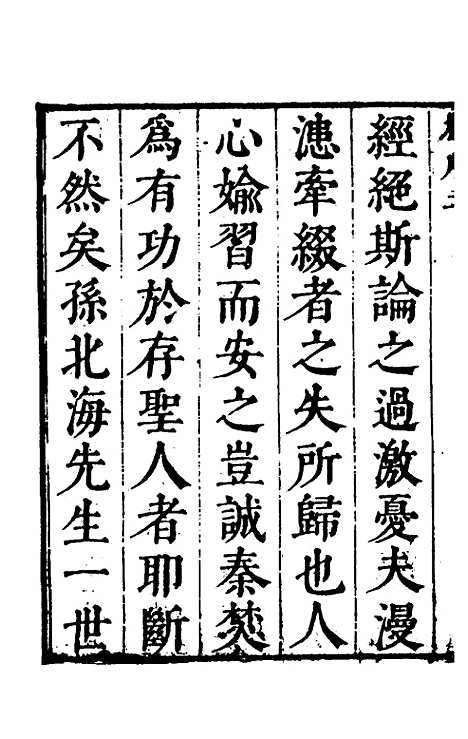 經絕斯論之過激憂夫漫
漶牽綴者之失所歸也人
心媮習而安之豈誠秦焚
爲有功於存聖人者耶斷
不然矣孫北海先生一世